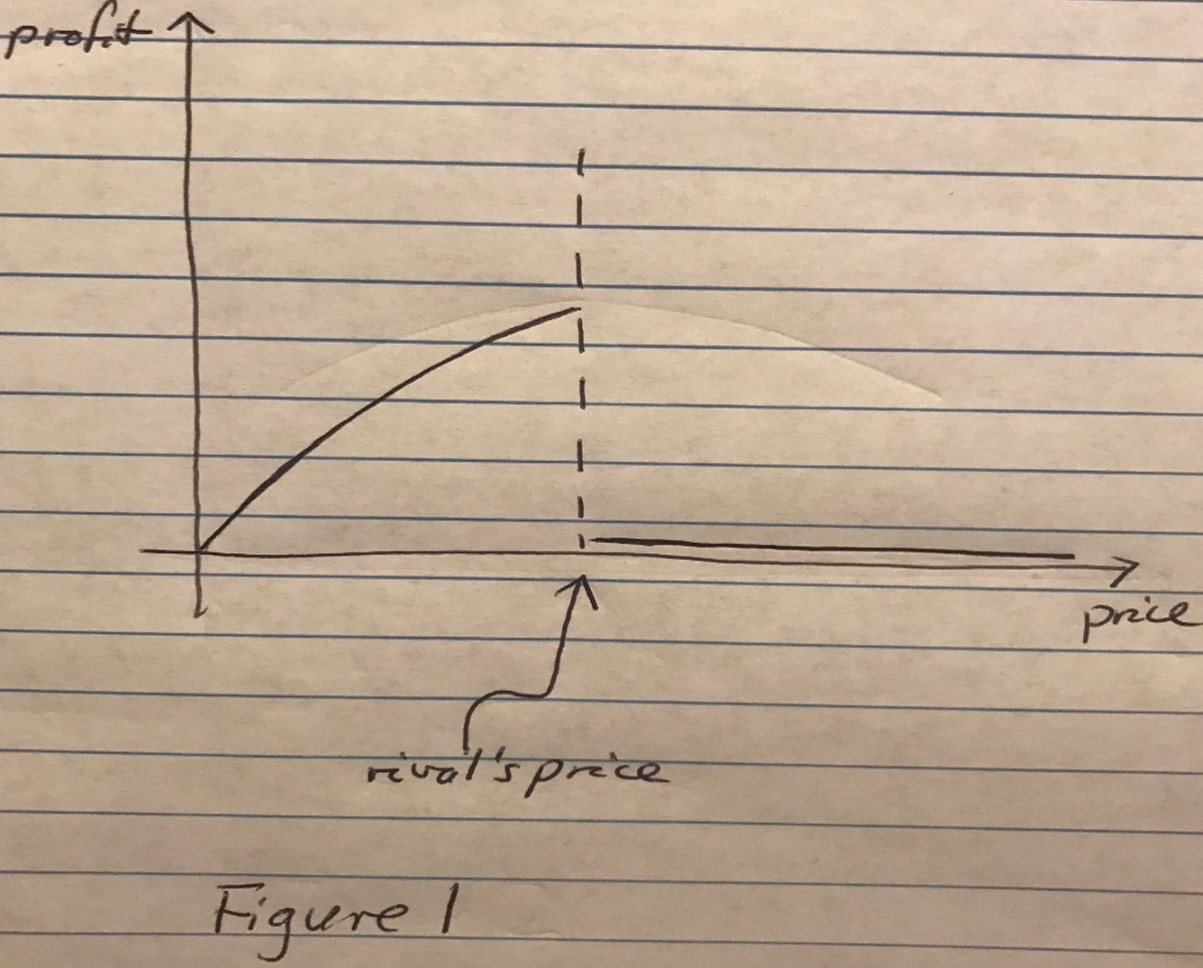 profit
price
rival's price
Figure 1